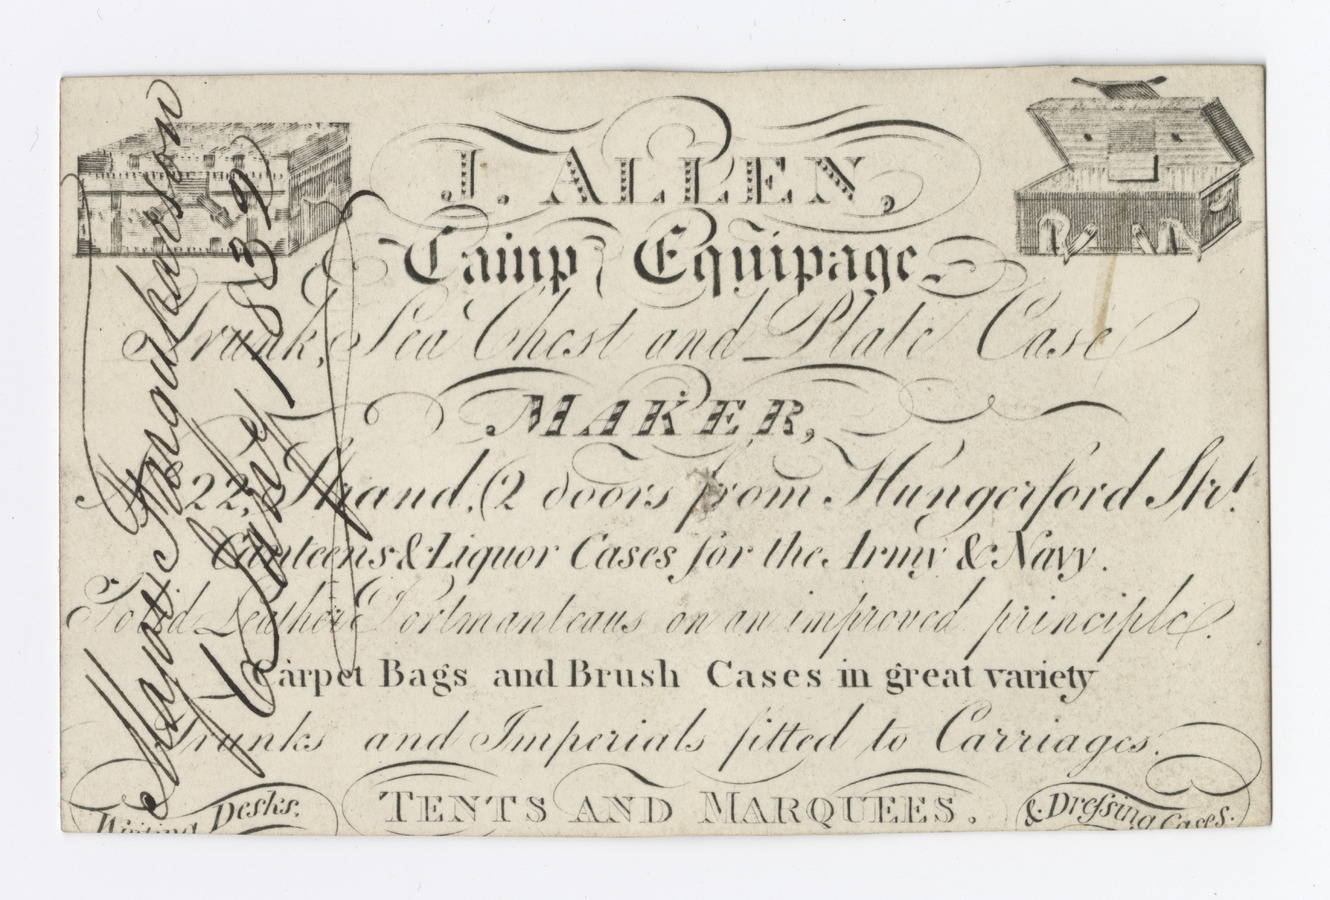 J. ALLEN,
Camp Equipage
Trunk, Sea Chest and Plate Case
MAKER,
22, Strand, (2 doors from Hungerford Str.t
Canteens & Liquor Cases for the Army & Navy.
Leather Portmanteaus on an improved principle.
Carpet Bags and Brush Cases in great variety
Trunks and Imperials fitted to Carriages.
Writing Desks.
TENTS AND MARQUEES.
& Dressing Cases.
1839